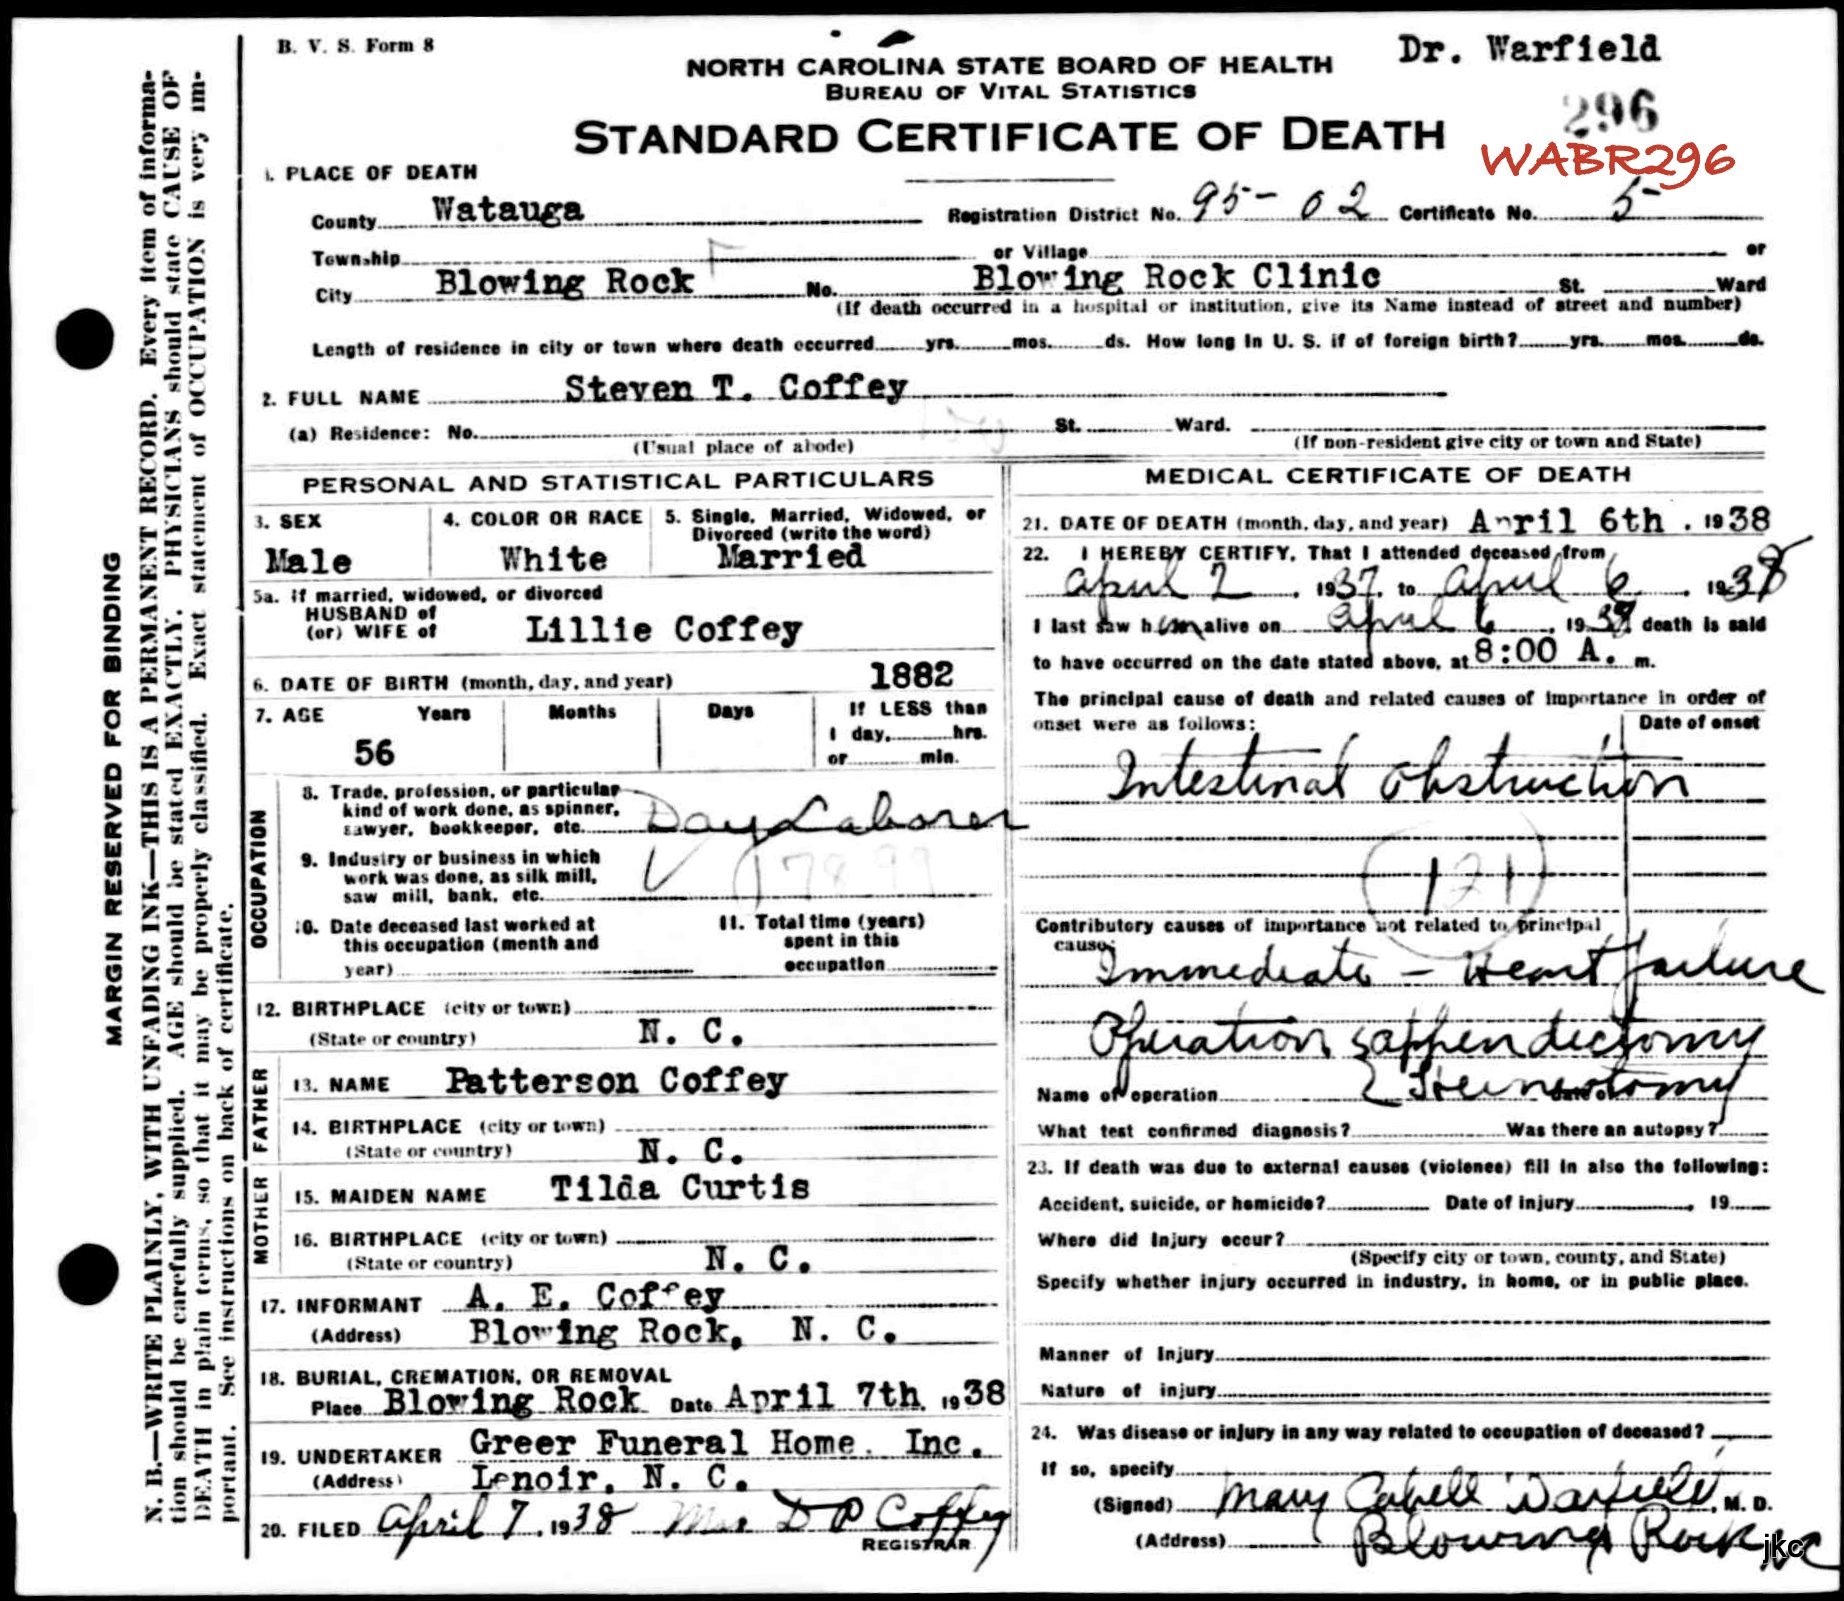 B. V. S. Form 8
Dr. Warfield
NORTH CAROLINA STATE BOARD OF HEALTH
BUREAU OF VITAL STATISTICS
296
STANDARD CERTIFICATE OF DEATH
WABR296
1. PLACE OF DEATH
County Watauga Registration District No. 95-02 Certificate No. 5
Township or Village or
City Blowing Rock No. Blowing Rock Clinic St. Ward
(If death occurred in a hospital or institution, give its Name instead of street and number)
Length of residence in city or town where death occurred yrs. mos. ds. How long in U. S. if of foreign birth? yrs. mos. ds.
2. FULL NAME Steven T. Coffey
(a) Residence: No. St. Ward.
(Usual place of abode) (If non-resident give city or town and State)
PERSONAL AND STATISTICAL PARTICULARS
3. SEX 4. COLOR OR RACE 5. Single, Married, Widowed, or
Divorced (write the word)
Male White Married
5a. If married, widowed, or divorced
HUSBAND of
(or) WIFE of Lillie Coffey
6. DATE OF BIRTH (month, day, and year) 1882
7. AGE Years Months Days If LESS than
1 day, hrs.
56 or min.
OCCUPATION
8. Trade, profession, or particular
kind of work done, as spinner,
sawyer, bookkeeper, etc. Day Laborer
9. Industry or business in which
work was done, as silk mill,
saw mill, bank, etc.
10. Date deceased last worked at
this occupation (month and
year)
11. Total time (years)
spent in this
occupation
12. BIRTHPLACE (city or town)
(State or country) N. C.
FATHER
13. NAME Patterson Coffey
14. BIRTHPLACE (city or town)
(State or country) N. C.
MOTHER
15. MAIDEN NAME Tilda Curtis
16. BIRTHPLACE (city or town)
(State or country) N. C.
17. INFORMANT A. E. Coffey
(Address) Blowing Rock, N. C.
18. BURIAL, CREMATION, OR REMOVAL
Place Blowing Rock Date April 7th, 1938
19. UNDERTAKER Greer Funeral Home, Inc.
(Address) Lenoir, N. C.
20. FILED April 7, 1938 Mrs D P Coffey
REGISTRAR
MEDICAL CERTIFICATE OF DEATH
21. DATE OF DEATH (month, day, and year) April 6th, 1938
22. I HEREBY CERTIFY, That I attended deceased from
April 2, 1937, to April 6, 1938
I last saw him alive on April 6, 1938 death is said
to have occurred on the date stated above, at 8:00 A. m.
The principal cause of death and related causes of importance in order of
onset were as follows:
Date of onset
Intestinal Obstruction
121
Contributory causes of importance not related to principal
cause:
Immediate - Heart failure
Operation appendectomy
Name of operation Date of
What test confirmed diagnosis? Was there an autopsy?
23. If death was due to external causes (violence) fill in also the following:
Accident, suicide, or homicide? Date of injury , 19
Where did injury occur?
(Specify city or town, county, and State)
Specify whether injury occurred in industry, in home, or in public place.
Manner of Injury
Nature of injury
24. Was disease or injury in any way related to occupation of deceased?
If so, specify
(Signed) Mary Cabell Warfield, M. D.
(Address) Blowing Rock NC
jkc
MARGIN RESERVED FOR BINDING
N. B.—WRITE PLAINLY, WITH UNFADING INK—THIS IS A PERMANENT RECORD. Every item of informa-
tion should be carefully supplied. AGE should be stated EXACTLY. PHYSICIANS should state CAUSE OF
DEATH in plain terms, so that it may be properly classified. Exact statement of OCCUPATION is very im-
portant. See instructions on back of certificate.